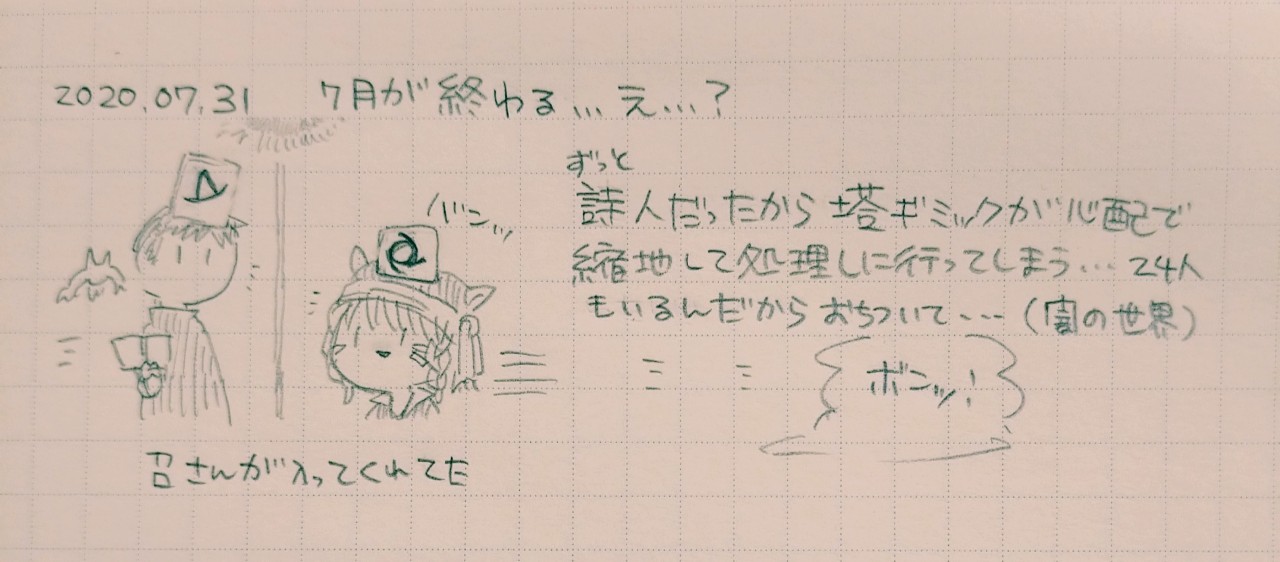 2020.07.31 7月が終わる...え...?
ずっと
詩人だったから塔ギミックが心配で
縮地して処理しに行ってしまう... 24人
もいるんだからおちついて....(闇の世界)
バンッ
ボンッ!
召さんが入ってくれてた